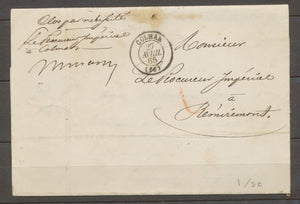 Clos par nécessité
Le Procureur Impérial
à Colmar
COLMAR
27
AVRIL
65
(66)
Monsieur
Le Procureur Impérial
à
Rémiremont
1/20